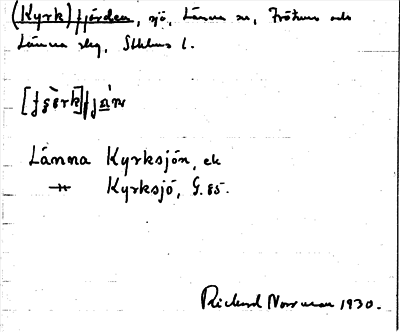 (Kyrk)fjärden, sjö, Länna sn, Frötuna och
Länna skg, Sthlms l.
Länna Kyrksjön, ek
-"- Kyrksjö, G. 85.
Rickard Norrman 1930.